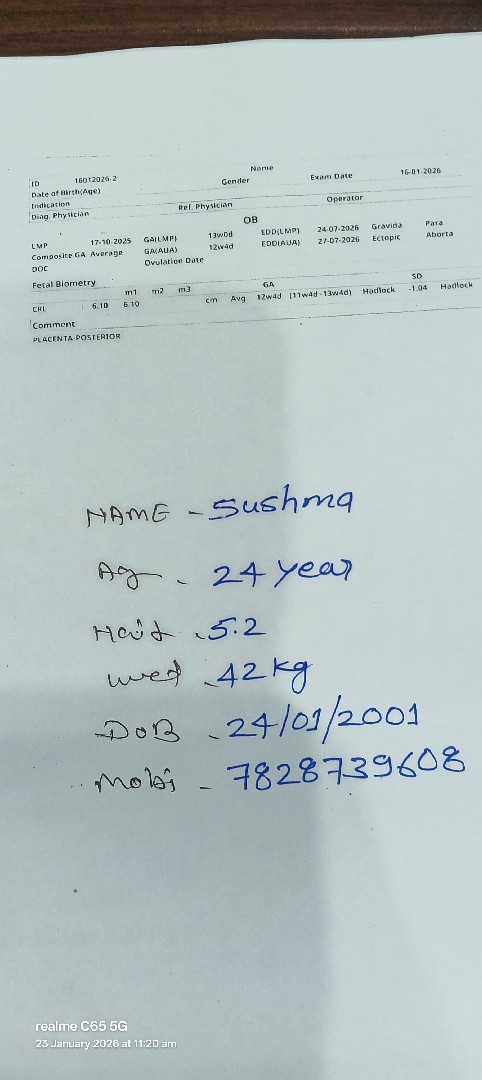 Name
ID 16012026-2 Gender Exam Date 16-01-2026
Date of Birth(Age)
Indication Ref. Physician Operator
Diag. Physician
OB
LMP 17-10-2025 GA(LMP) 13w0d EDD(LMP) 24-07-2026 Gravida Para
Composite GA Average GA(AUA) 12w4d EDD(AUA) 27-07-2026 Ectopic Aborta
DOC Ovulation Date
Fetal Biometry
m1 m2 m3 GA SD
CRL 6.10 6.10 cm Avg 12w4d (11w4d-13w4d) Hadlock -1.04 Hadlock
Comment
PLACENTA-POSTERIOR
NAME - Sushma
Ag - 24 year
Hait - 5.2
wed - 42 kg
DOB - 24/01/2001
Mobi - 7828739608
realme C65 5G
23 January 2026 at 11:20 am